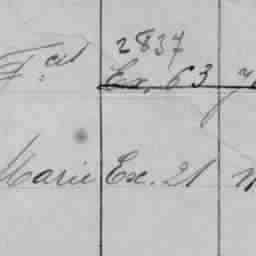 2837
Fcis Ex. 63
Marie Ex. 21